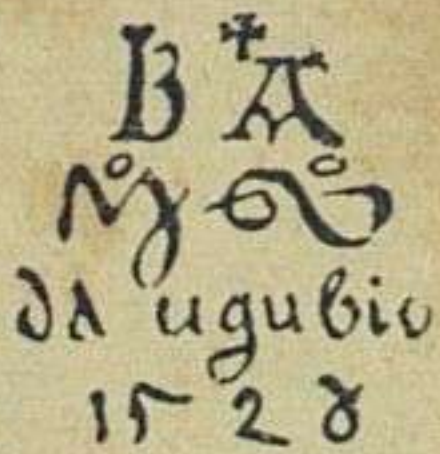 B A
Mº Gº
da ugubio
1528